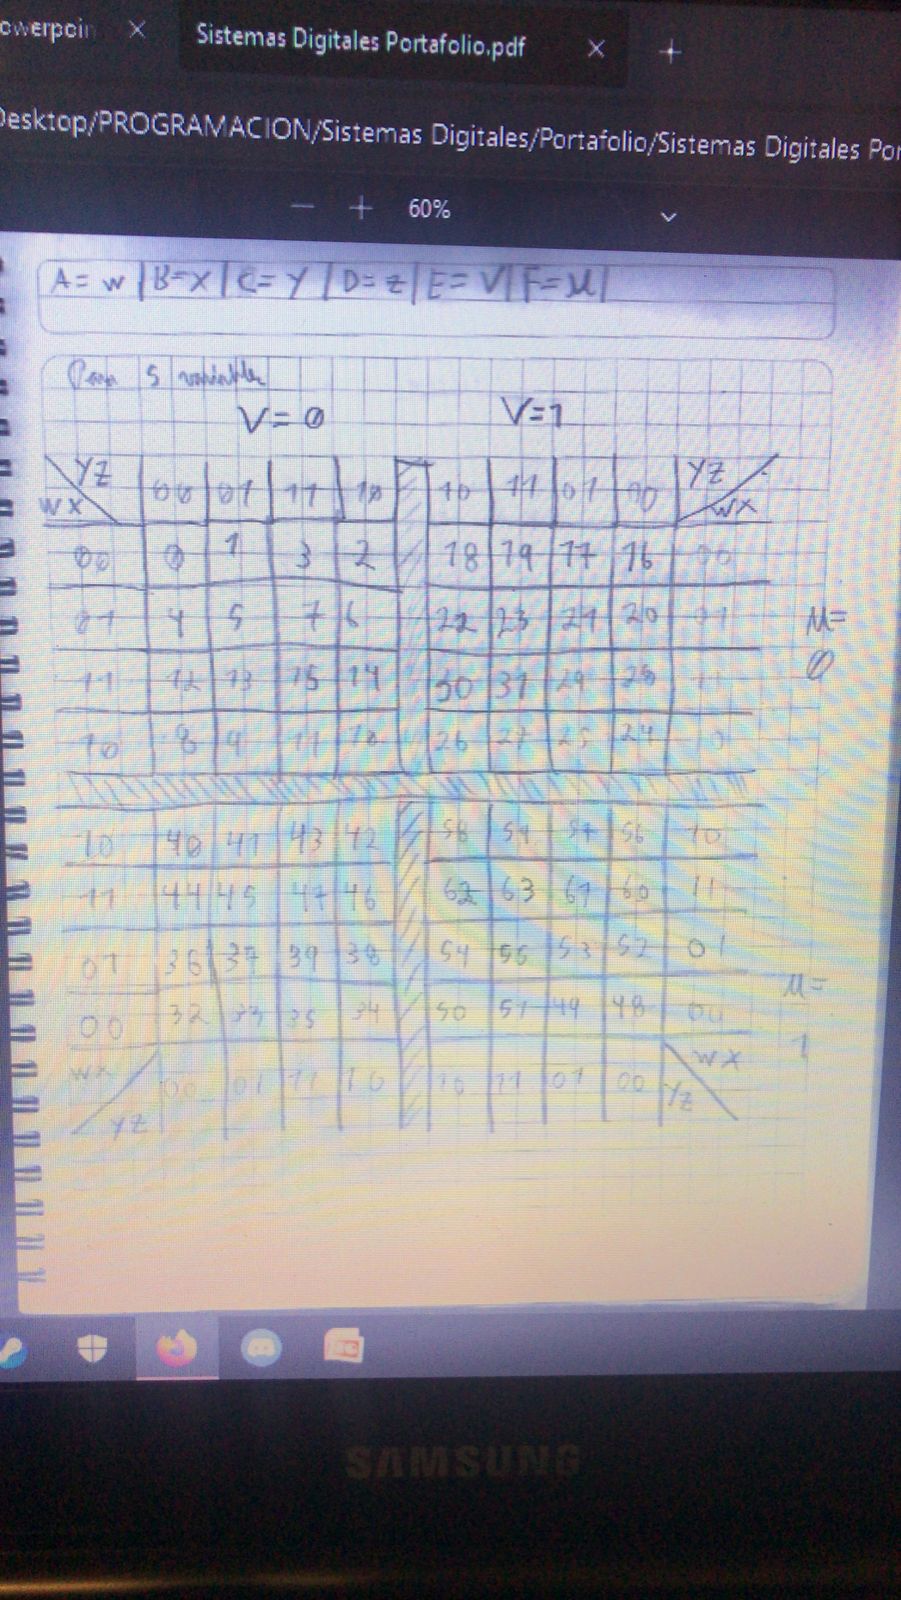 owerpoin
Sistemas Digitales Portafolio.pdf
Desktop/PROGRAMACION/Sistemas Digitales/Portafolio/Sistemas Digitales Por
60%
A= w | B=X | C= Y | D= Z | E= V | F= M |
Para 5 variables
V= 0 V=1
YZ 00 01 11 10 10 11 01 00 YZ
WX WX
00 0 1 3 2 18 19 17 16 00
01 4 5 7 6 22 23 21 20 01
M=
0
11 12 13 15 14 30 31 29 28 11
10 8 9 11 10 26 27 25 24 10
10 40 41 43 42 58 59 57 56 10
11 44 45 47 46 62 63 61 60 11
01 36 37 39 38 54 55 53 52 01
M=
1
00 32 33 35 34 50 51 49 48 00
WX 00 01 11 10 10 11 01 00 WX
YZ YZ
SAMSUNG